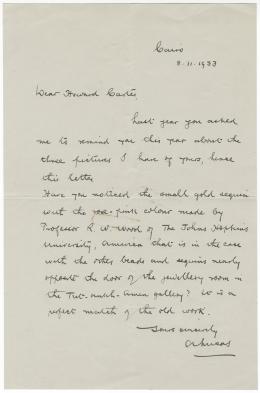 Cairo
8.11.1933
Dear Howard Carter,
Last year you asked
me to remind you this year about the
three pictures I have of yours, hence
this letter.
Have you noticed the small gold sequin
with the rose-pink colour made by
Professor R. W. Wood of The Johns Hopkins
University, America that is in the case
with the other beads and sequins nearly
opposite the door of the jewellery room in
the Tut-ankh-Amen gallery? It is a
perfect match of the old work.
Yours sincerely
A Lucas